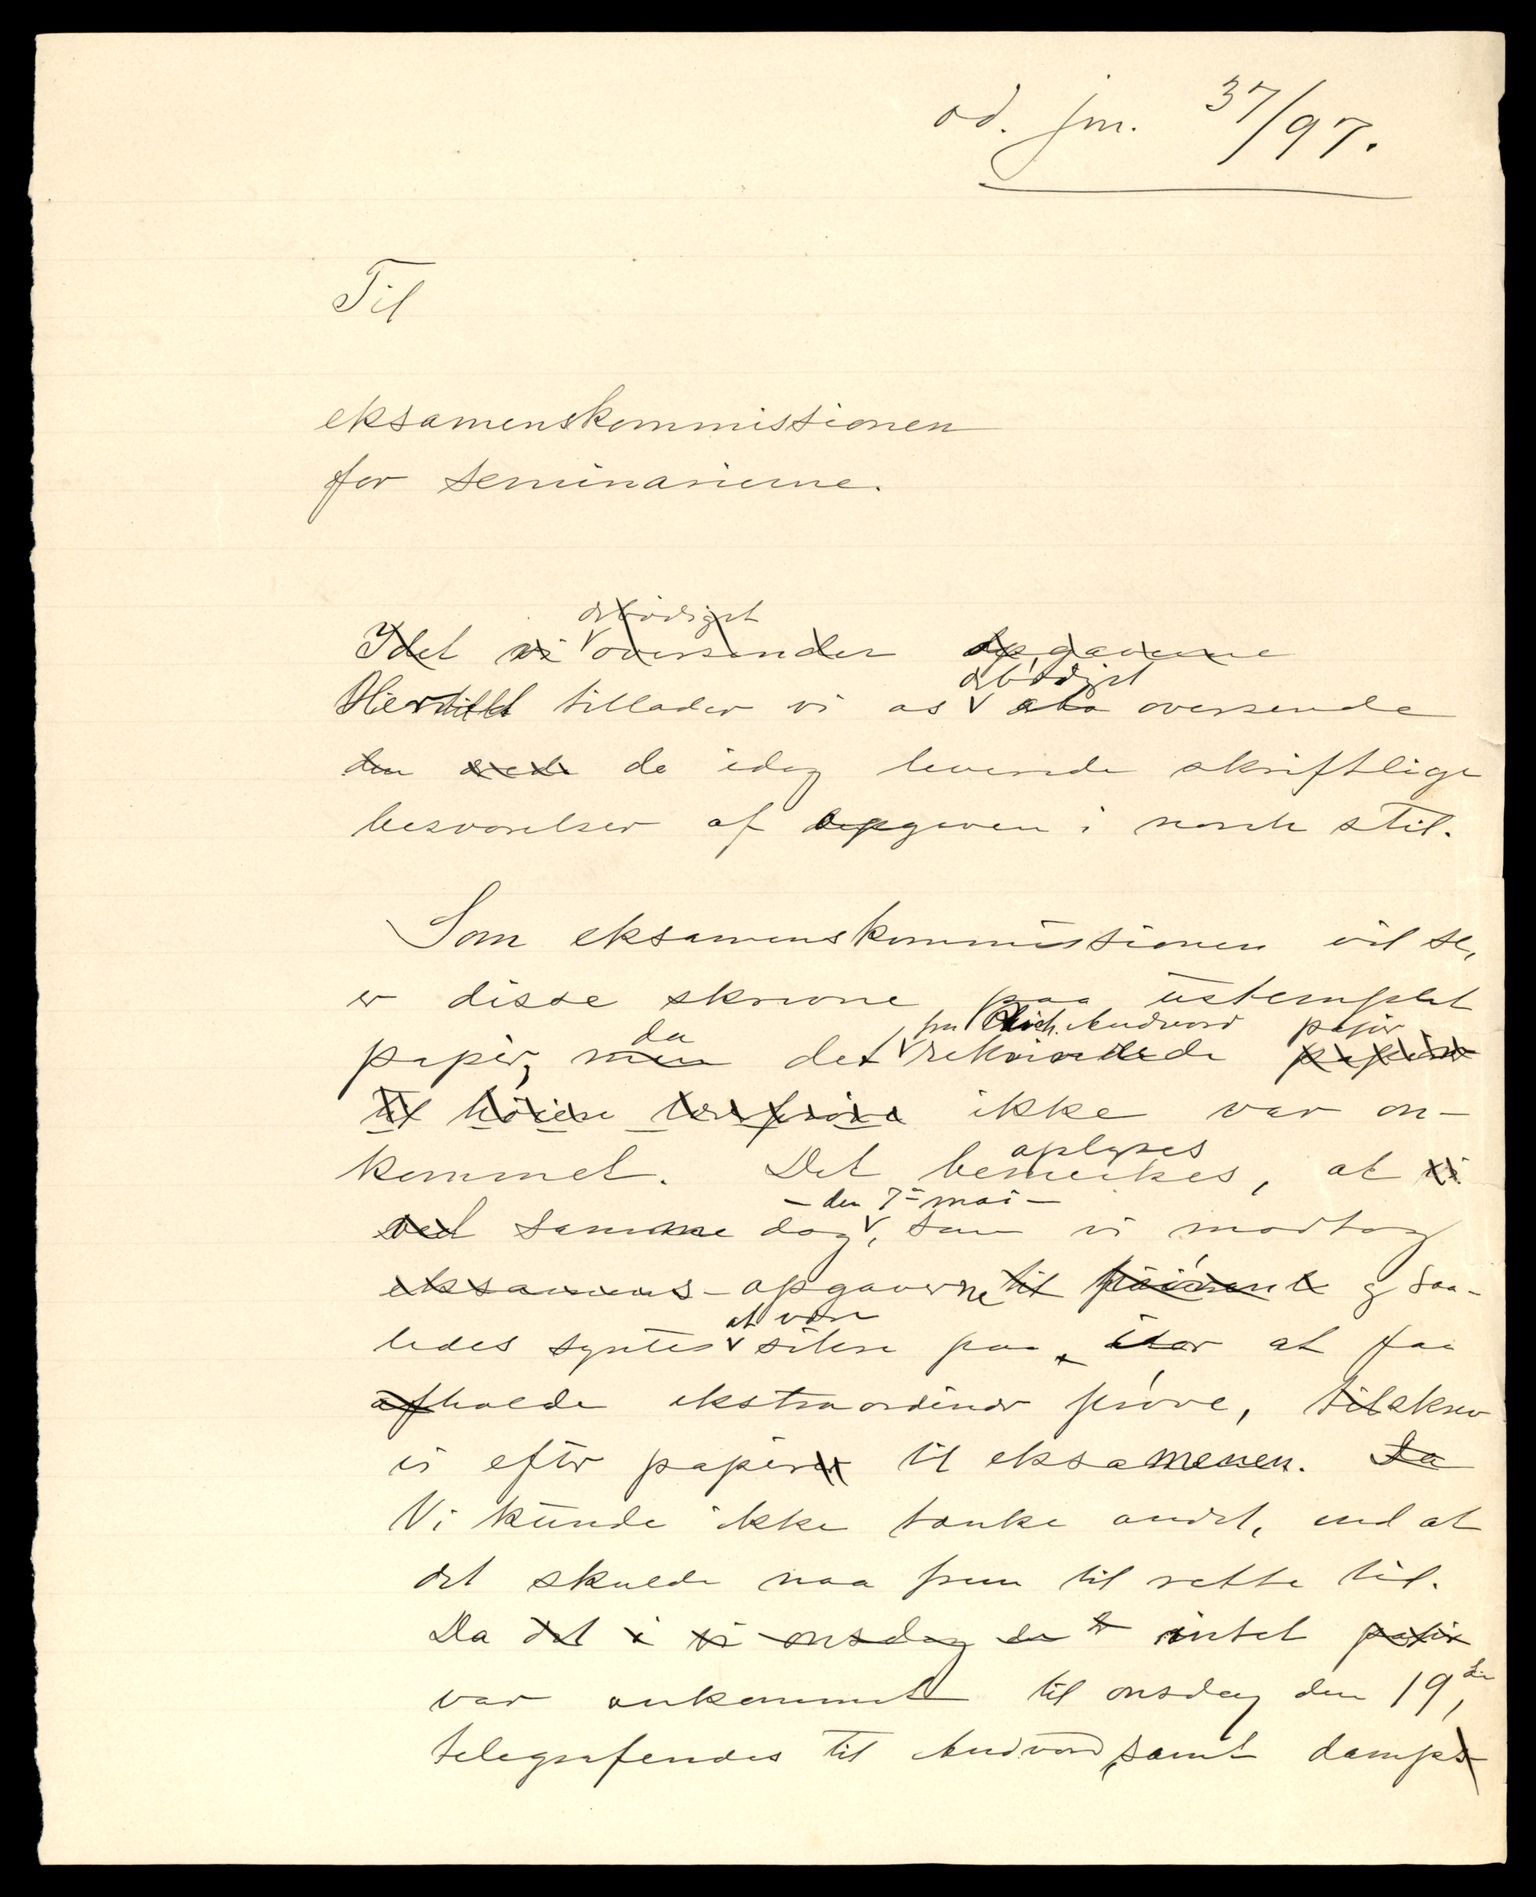 ad. jnr. 37/97.
Til
eksamenskommissionen
for seminarierne.
ærbødigst
Idet vi oversender opgaverne
ærbødigst
Hertil tillader vi os at oversende
den de idag leverede skriftlige
besvarelser af opgaven i norsk stil.
Som eksamenskommissionen vil se,
er disse skrevne paa ustemplet
da fra Rich. Andvord papir
papir, men det rekvirerede papir
til høiere lærerprøve ikke var an-
kommet. Det bemerkes, at vi
oplyses
- den 7de mai -
ved samme dag, som vi modtog
eksamens-opgaverne til prøven og saa-
at være
ledes syntes sikre paa, at faa
afholde ekstraordinær prøve, tilskrev
vi efter papir til eksamenen. Da
Vi kunde ikke tænke andet, end at
det skulde naa frem til rette tid.
Da det i vi onsdag den intet papir
var ankommet til onsdag den 19de,
telegraferedes til Andvord, samt damps